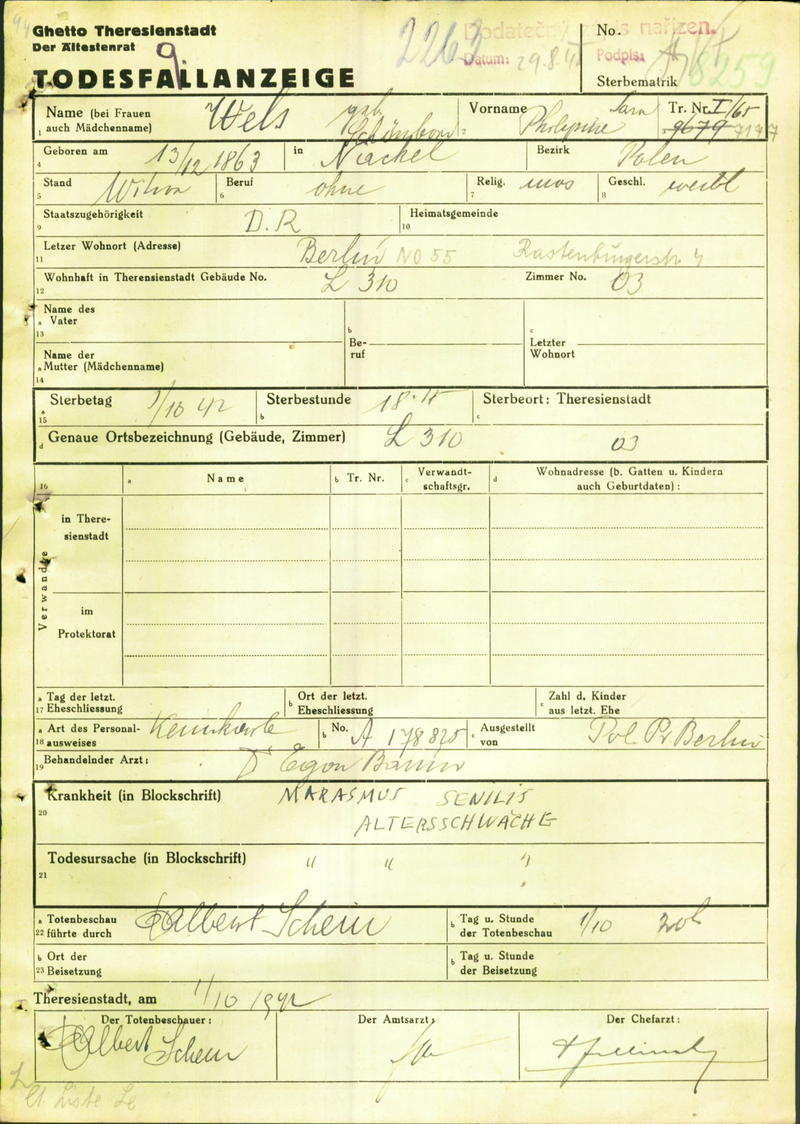 Ghetto Theresienstadt
Der Ältestenrat
TODESFALLANZEIGE
2263
Dodatečný nařízen.
Datum: 29.8.
Podpis:
No.
Sterbematrik
8259
Name (bei Frauen auch Mädchenname) Wels geb
1
Vorname Sara Philippine
2
Tr. Nr. I/65
9679
4 Geboren am 13/12 1863 in Nackel Bezirk Polen
5 Stand Witwe 6 Beruf ohne 7 Relig. mos 8 Geschl. weibl
9 Staatszugehörigkeit D.R 10 Heimatsgemeinde
11 Letzer Wohnort (Adresse) Berlin NO 55 Rastenburgerstr
12 Wohnhaft in Theresienstadt Gebäude No. L 310 Zimmer No. 03
13 a Name des Vater b Beruf c Letzter Wohnort
14 a Name der Mutter (Mädchenname)
15 a Sterbetag 1/10 42 b Sterbestunde 18 c Sterbeort: Theresienstadt
d Genaue Ortsbezeichnung (Gebäude, Zimmer) L 310 03
16 a Name b Tr. Nr. c Verwandtschaftsgr. d Wohnadresse (b. Gatten u. Kindern auch Geburtdaten):
Verwandte
in Theresienstadt
im Protektorat
17 a Tag der letzt. Eheschliessung b Ort der letzt. Eheschliessung c Zahl d. Kinder aus letzt. Ehe
18 a Art des Personalausweises Kennkarte b No. A 178825 c Ausgestellt von Pol. Pr Berlin
19 Behandelnder Arzt: Dr Egon
20 Krankheit (in Blockschrift) MARASMUS SENILIS
ALTERSSCHWÄCHE
21 Todesursache (in Blockschrift) " " "
22 a Totenbeschau führte durch Albert Schein b Tag u. Stunde der Totenbeschau 1/10 20h
23 b Ort der Beisetzung b Tag u. Stunde der Beisetzung
Theresienstadt, am 1/10 1942
Der Totenbeschauer: Der Amtsarzt: Der Chefarzt:
Albert Schein
Liste